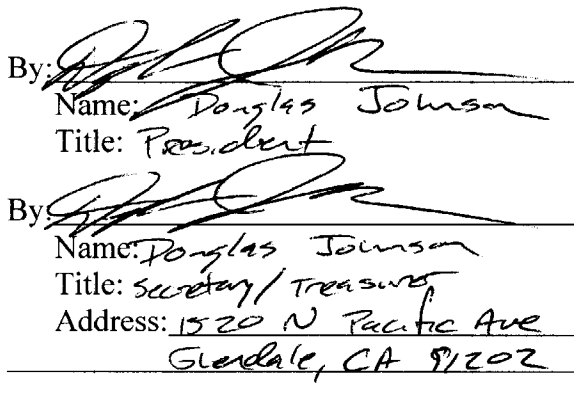 By:
Name: Douglas Johnson
Title: President
By:
Name: Douglas Johnson
Title: Secretary/Treasurer
Address: 1520 N Pacific Ave
Glendale, CA 91202